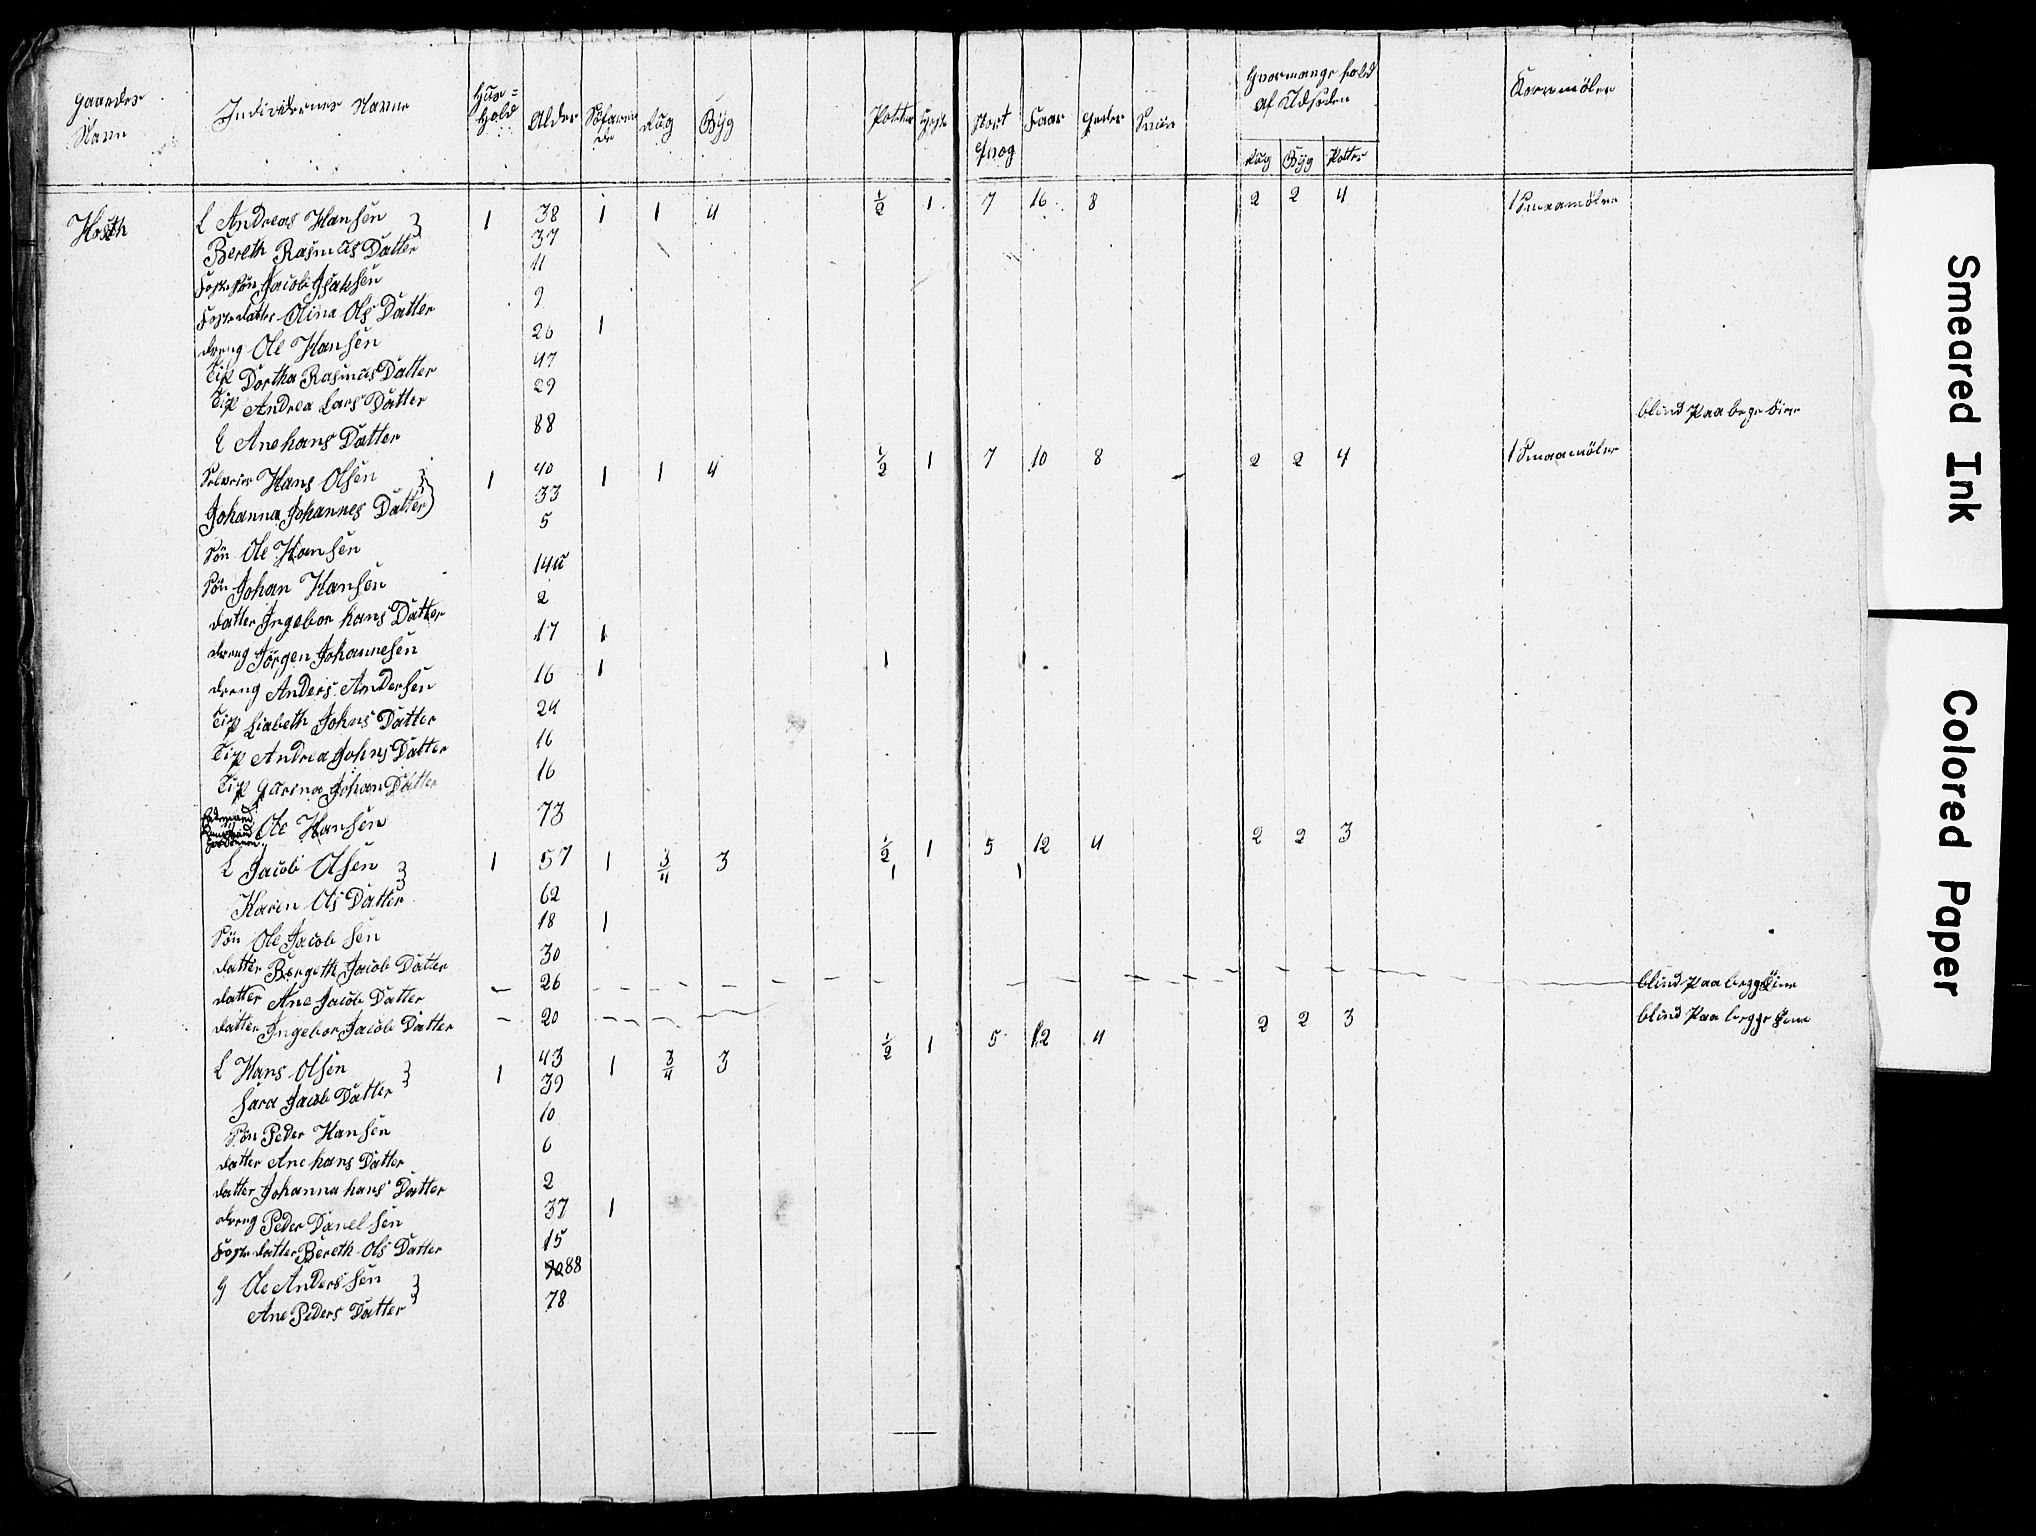 Gaardes Navn | Individernes Navne | Huus=hold | Alder | Söfarende | Rug | Byg | Potter | Heste | Stort Qvæg | Faar | Geder | Sviin | Hvormange fold af Udsæden | Kornmöler
Rug | Byg | Potter
Hosth | L Andreas Hansen | 1 | 38 | 1 | 1 | 4 | 1/2 | 1 | 7 | 16 | 8 | 2 | 2 | 4 | 1 Smaamöler
Bereth Rasmus Datter | 37
Foster Sön Jacob Isaksen | 11
Foster datter Olina Ols Datter | 9
dreng Ole Hansen | 26 | 1
Tip Dortha Rasmus Datter | 47
Tip Andrea Lars Datter | 29
E Ane hans Datter | 88 | blind Paa bege
Selveier Hans Olsen | 1 | 40 | 1 | 1 | 4 | 1/2 | 1 | 7 | 10 | 8 | 2 | 2 | 4 | 1 Smaamöler
Johanna Johannes Datter | 33
Sön Ole Hansen | 5
Sön Johan Hansen | 14u
datter Ingebor hans Datter | 2
dreng Jörgen Johannesen | 17 | 1
dreng Anders Andersen | 16 | 1
Tip Lisbeth Johns Datter | 24
Tip Andrea Johns Datter | 16
Tip Garina Johan Datter | 16
Ole Hansen | 73
L Jacob Olsen | 1 | 57 | 1 | 3/4 | 3 | 1/2 | 1 | 5 | 12 | 4 | 2 | 2 | 3
Karen Ols Datter | 62
Sön Ole Jacobsen | 18 | 1
datter Bergeth Jacob Datter | 30
datter Ane Jacob Datter | 26 | blind Paa begge Öine
datter Ingebor Jacob Datter | 20 | blind Paa begge Öine
L Hans Olsen | 1 | 43 | 1 | 3/4 | 3 | 1/2 | 1 | 5 | 12 | 4 | 2 | 2 | 3
Sara Jacob Datter | 39
Sön Peder Hansen | 10
datter Ane hans Datter | 6
datter Johanna hans Datter | 2
dreng Peder Danelsen | 37 | 1
Foster datter Bereth Ols Datter | 15
G Ole Andersen | 88
Ane Peders Datter | 78
Smeared Ink
Colored Paper